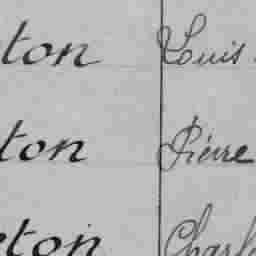 ton Louis
ton Pierre
eton Charl